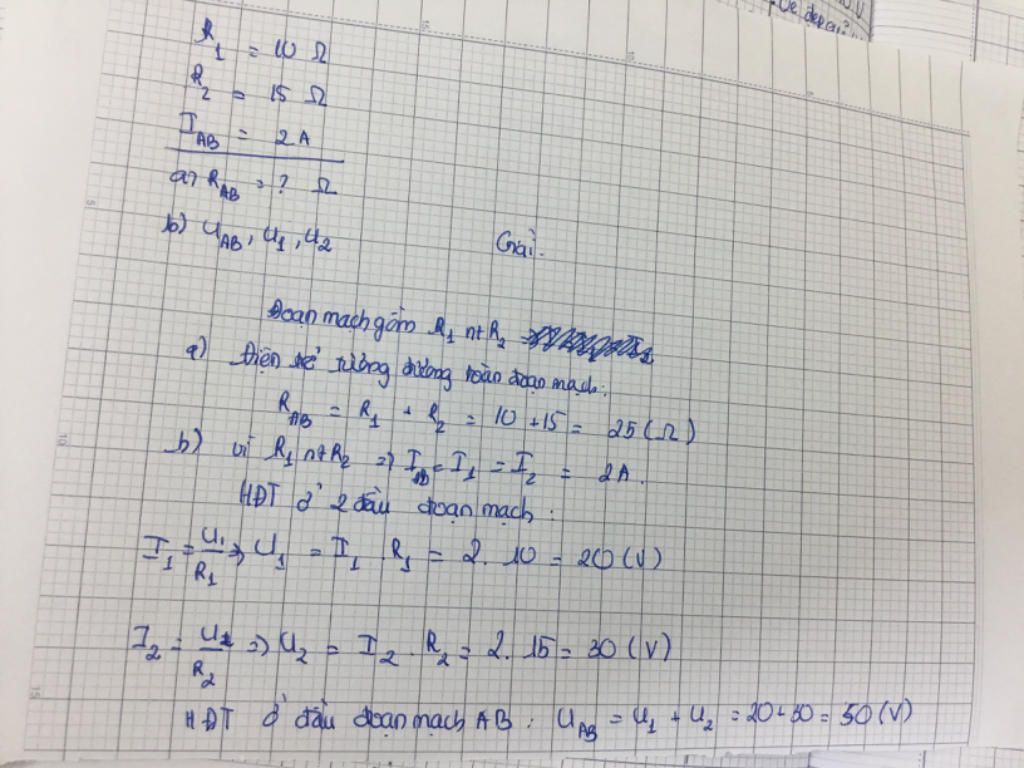 R₁ = 10 Ω
R₂ = 15 Ω
I_AB = 2A
a) R_AB = ? Ω
b) U_AB, U₁, U₂
Giải:
Đoạn mạch gồm R₁ nt R₂
a) Điện trở tương đương toàn đoạn mạch:
R_AB = R₁ + R₂ = 10 + 15 = 25 (Ω)
b) vì R₁ nt R₂ => I_AB = I₁ = I₂ = 2A.
HĐT ở 2 đầu đoạn mạch:
I₁ = U₁/R₁ => U₁ = I₁ . R₁ = 2. 10 = 20 (V)
I₂ = U₂/R₂ => U₂ = I₂ . R₂ = 2. 15 = 30 (V)
HĐT ở đầu đoạn mạch AB : U_AB = U₁ + U₂ = 20 + 30 = 50 (V)